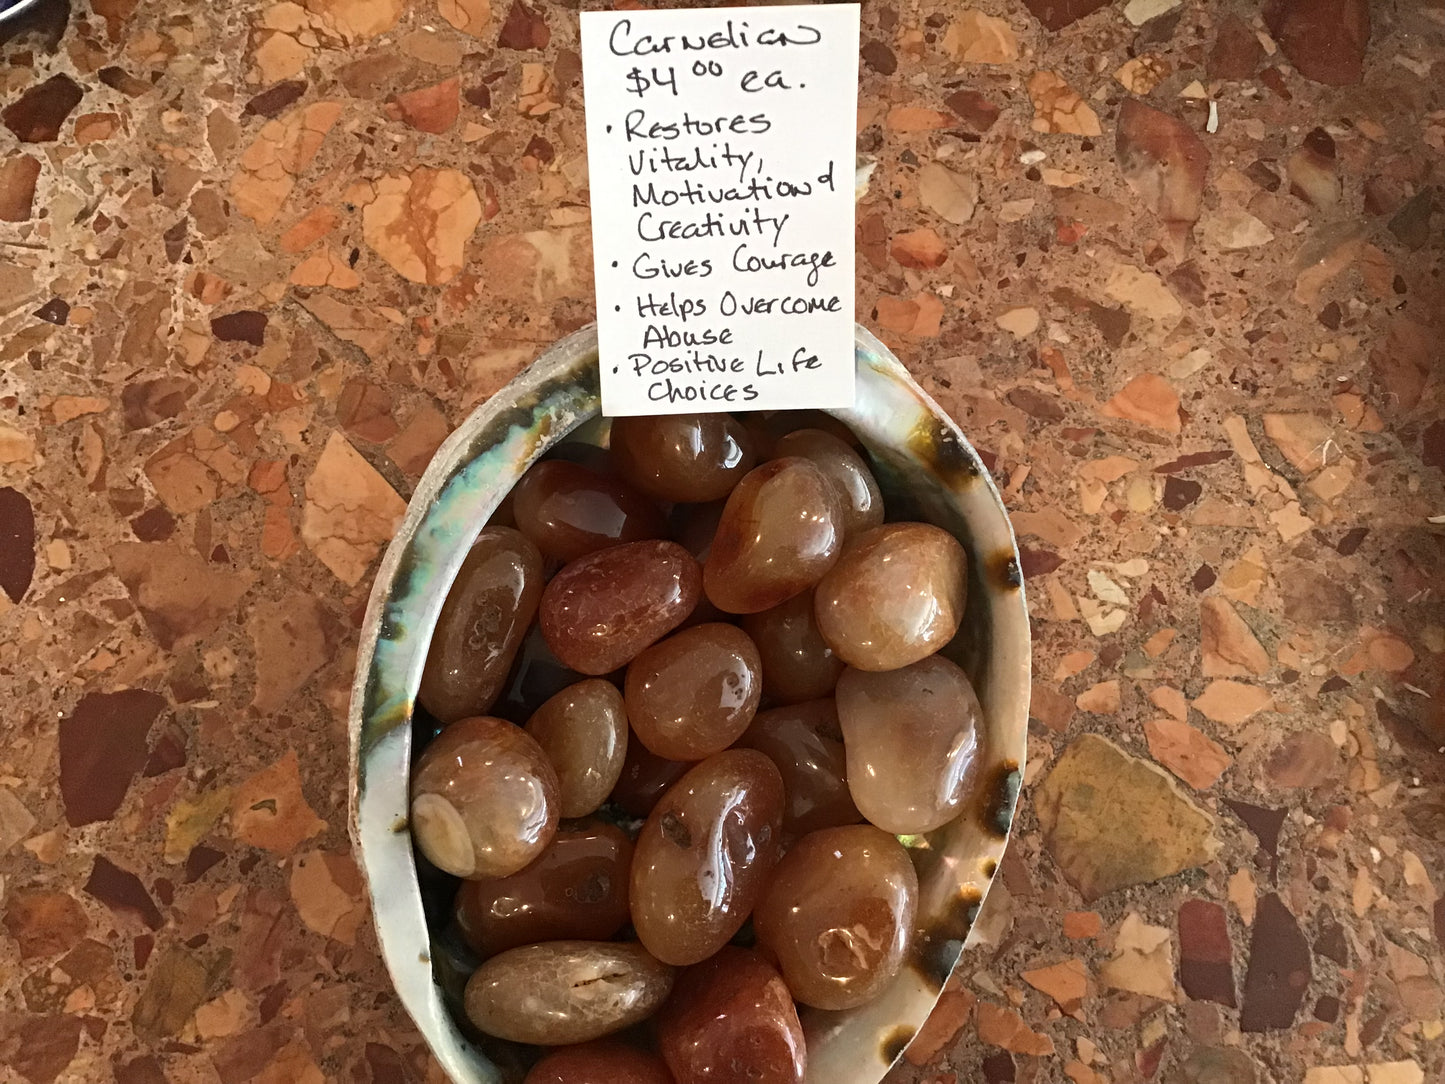 Carnelian
$4.00 ea.
• Restores
Vitality,
Motivation &
Creativity
• Gives Courage
• Helps Overcome
Abuse
• Positive Life
Choices